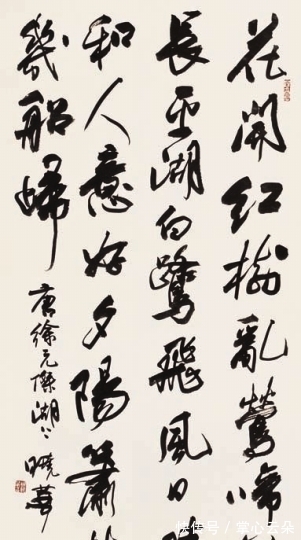 花開紅樹亂鶯啼
長平湖白鷺飛風日
和人意好夕陽簫
幾船歸
唐徐元傑湖上 曉華
快传号 / 掌心云朵